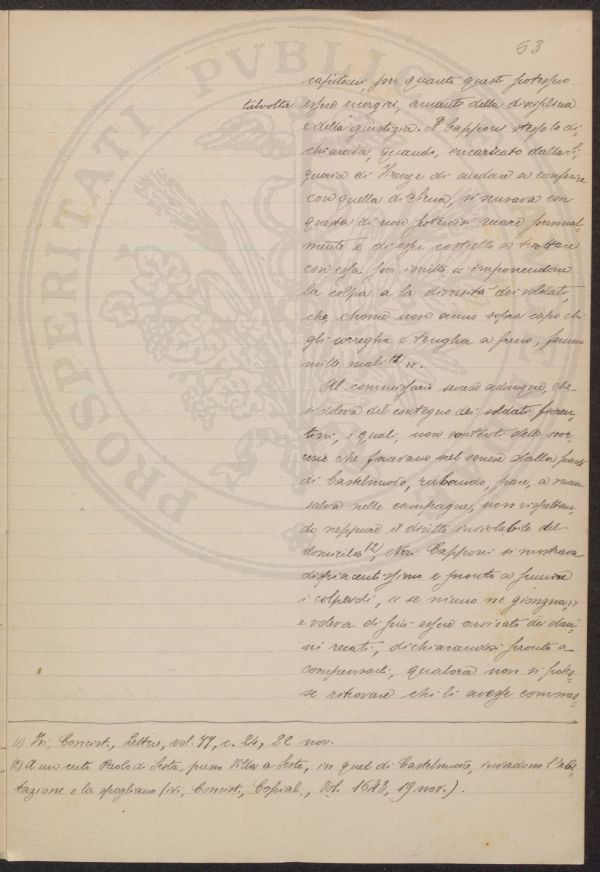 63
capitani, per quanto questi potessero
talvolta essere energici, amanti della disciplina
e della giustizia. Il Capponi stesso lo di-
chiarava, quando, incaricato dalla Si-
gnoria di Firenze di andare a
con quella di Siena, si scusava con
questa di non potervisi recare personal-
mente e di esser costretto a trattare
con essa per iscritto e imponendone
la colpa a la diversità dei soldati,
che, chome non anno sopra capo chi
gli corregha e tengha a freno, fanno
mille mali (1) ».
Al commissario senese adunque, che
si doleva del contegno dei soldati fioren-
tini, i quali, non contenti delle scor-
rerie che facevano nel senese dalla parte
di Castelnuovo, rubando, pare, a man
salva nelle campagne, non rispettan-
do neppure il diritto inviolabile del
domicilio (2), Neri Capponi si mostrava
dispiacentissimo e pronto a punire
i colpevoli, se niuno ne
e voleva di più essere avvisato dei dan-
ni recati, dichiarandosi pronto a
compensarli, qualora non si potes-
se ritrovare chi li avesse commes-
(1) Ivi, Concist., Lettere, vol. 47, c. 24, 22 nov.
(2) A un certo Paolo di Sesta, presso Villa a Sesta, in quel di Castelnuovo, invadono l'abi-
tazione e la spogliano (ivi, Concist., Copial., Vol. 1643, 19 nov.).
PROSPERITATI PUBLICAE